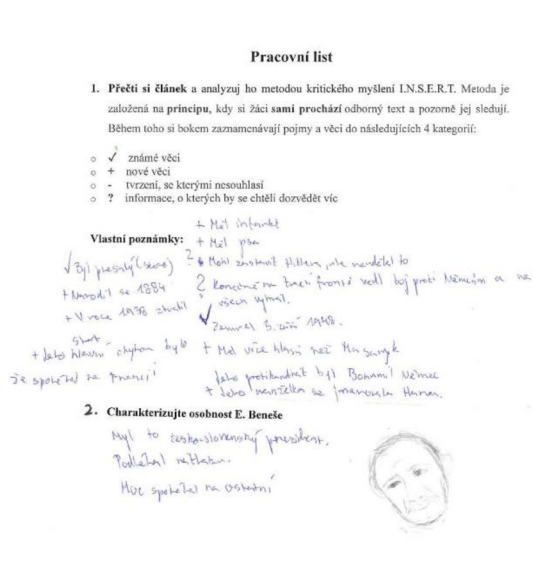 Pracovní list
1. Přečti si článek a analyzuj ho metodou kritického myšlení I.N.S.E.R.T. Metoda je
založená na principu, kdy si žáci sami prochází odborný text a pozorně jej sledují.
Během toho si bokem zaznamenávají pojmy a věci do následujících 4 kategorií:
○ ✓ známé věci
○ + nové věci
○ - tvrzení, se kterými nesouhlasí
○ ? informace, o kterých by se chtěli dozvědět víc
+ Měl infarkt
Vlastní poznámky: + Měl psa
✓ Byl presidentý
? Mohl zastavit Hitlera, ale neudělal to
+ Narodil se 1884
? Konečně na frontě vedl boj proti Němcům a na
všech vyhrál.
+ V roce 1938
✓ Zemřel 3. září 1948.
+ Jeho hlavní chybou bylo
+ Měl více hlasů než Masaryk
že spoléhal na Francii
Jeho protikandidát byl Bohumil Němec
+ Jeho manželka se jmenovala Hana.
2. Charakterizujte osobnost E. Beneše
Byl to československý prezident.
Podléhal nátlaku.
Moc spoléhal na ostatní